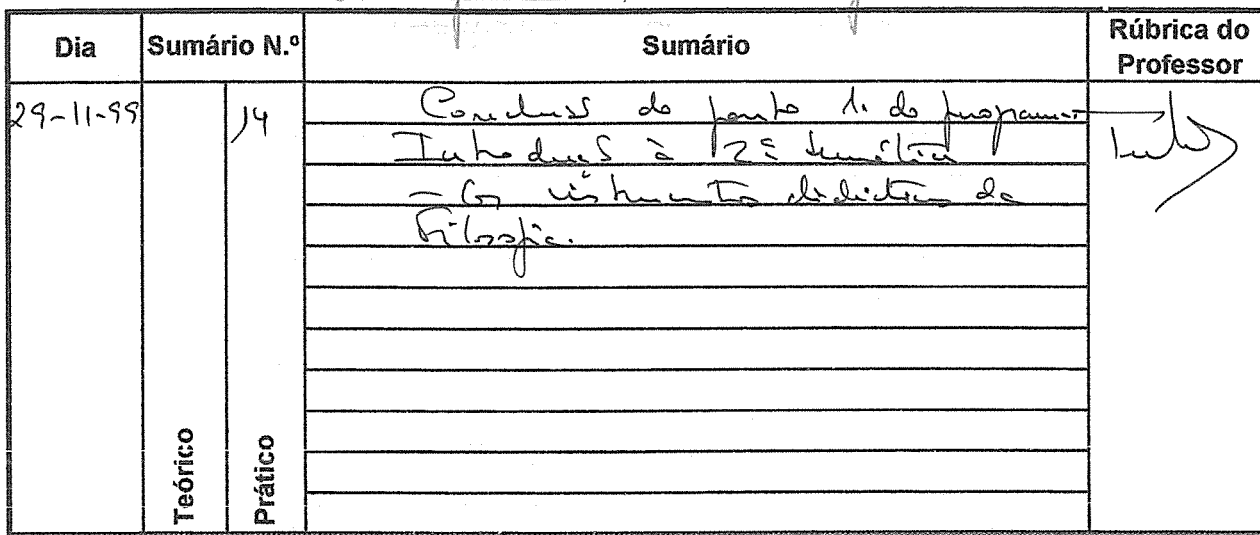 Dia Sumário N.º Sumário Rúbrica do Professor
29-11-99 14 Conclusão do ponto 1. do programa
Introdução à 2ª temática
- Os instrumentos didácticos da
Filosofia.
Teórico Prático